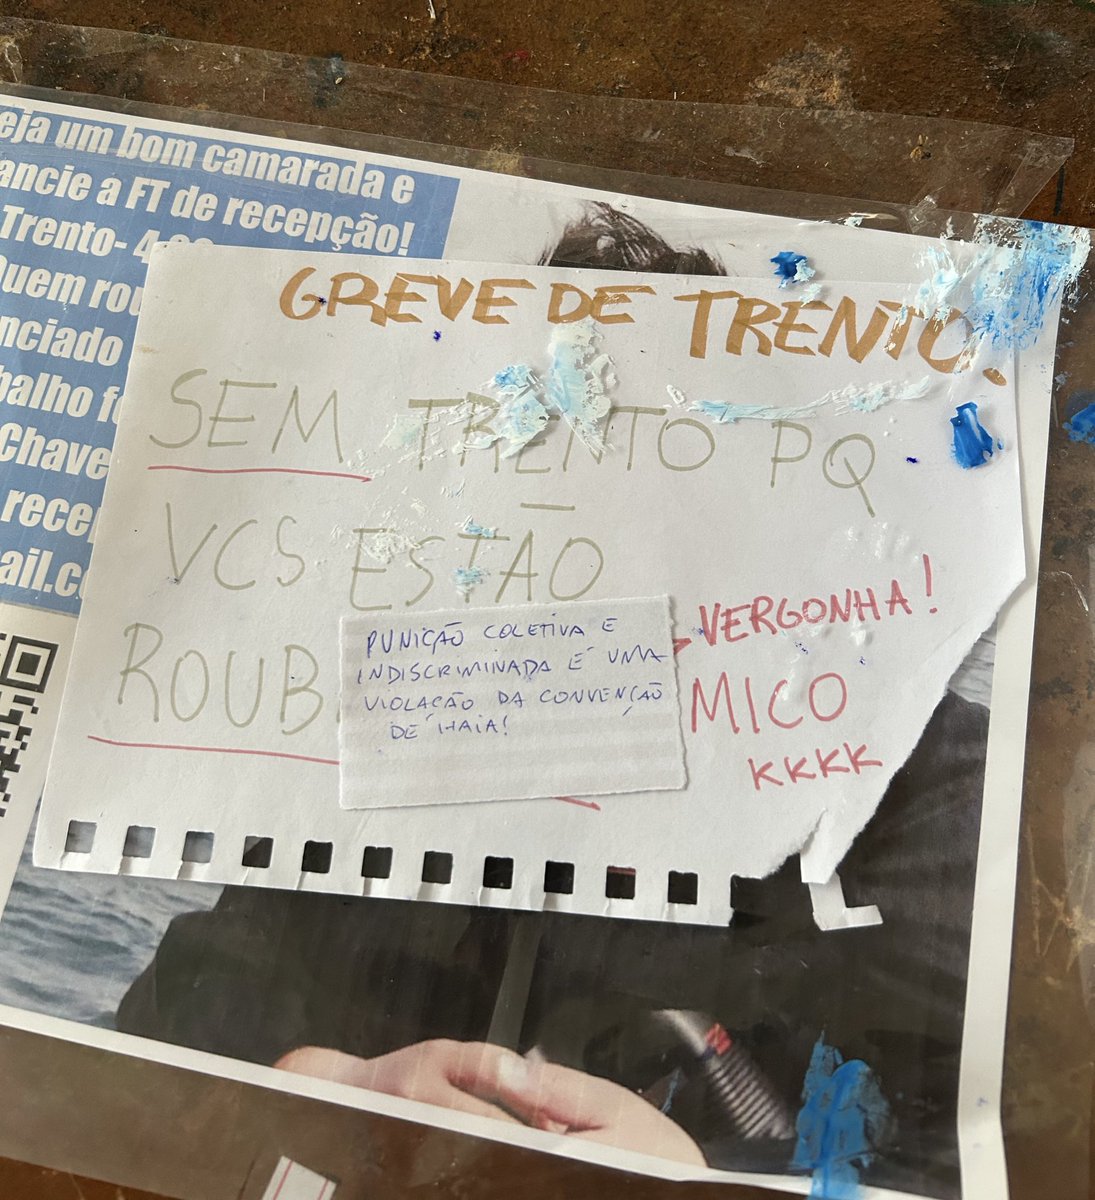 eja um bom camarada e
ancie a FT de recepção!
Trento- 4
Quem rou
nciado
balho fo
Chave
recep
ail.c
GREVE DE TRENTO.
SEM TRENTO PQ
VCS ESTÃO
ROUB
VERGONHA!
MICO
KKKK
PUNIÇÃO COLETIVA E
INDISCRIMINADA É UMA
VIOLAÇÃO DA CONVENÇÃO
DE HAIA!